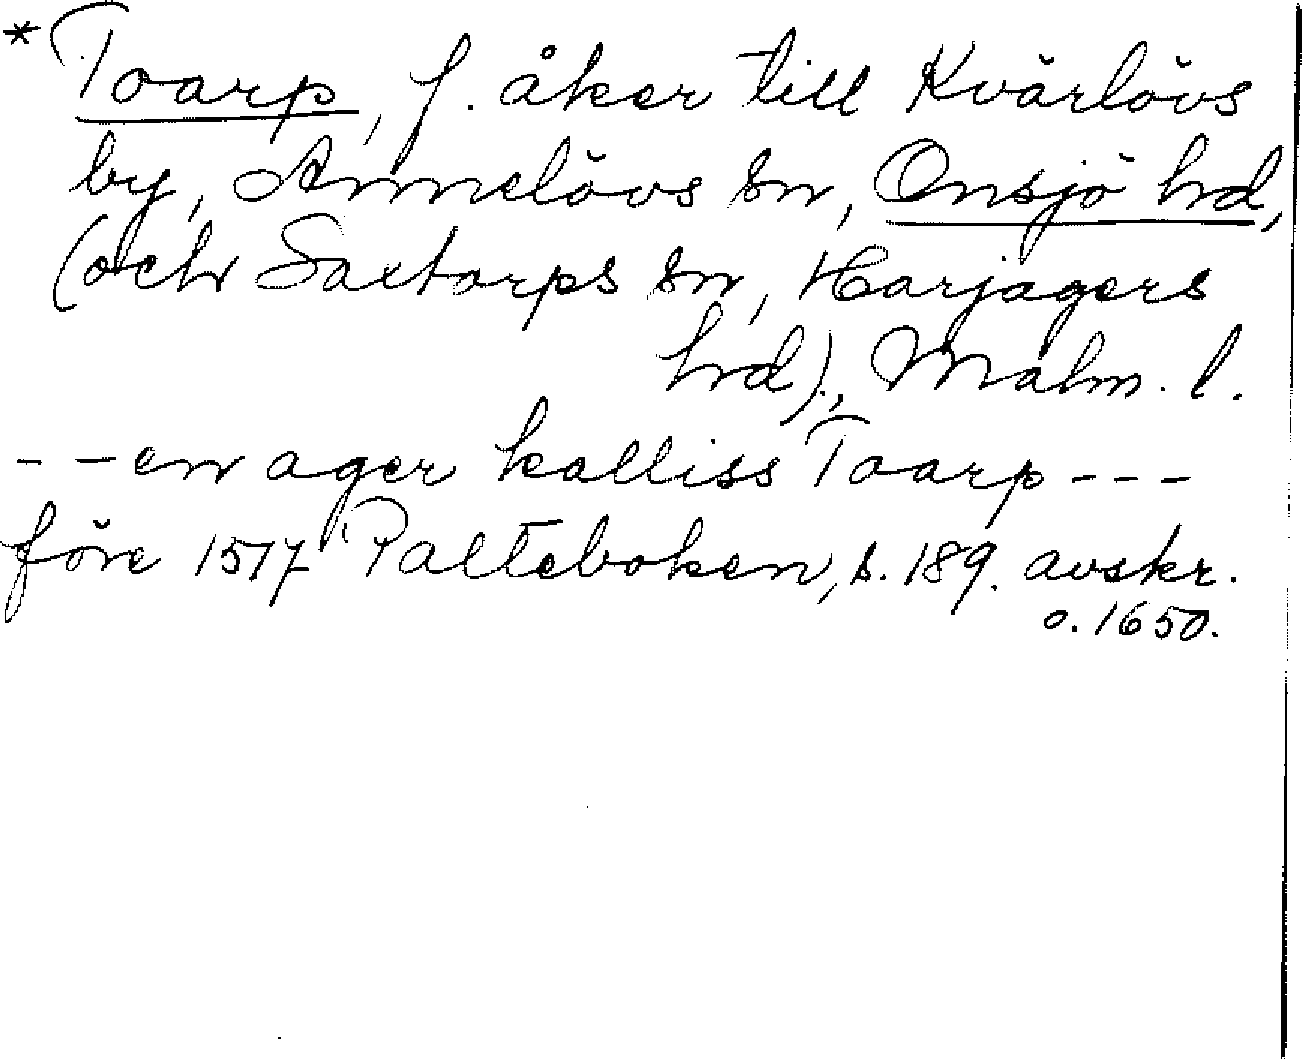 * Toarp, f. åker till Kvärlövs
by, Annelövs sn, Onsjö hd,
(och Saxtorps sn, Harjagers
hd), Malm. l.
- - en ager kalliss Toarp - - -
före 1517 Palteboken, s. 189. avskr.
o. 1650.